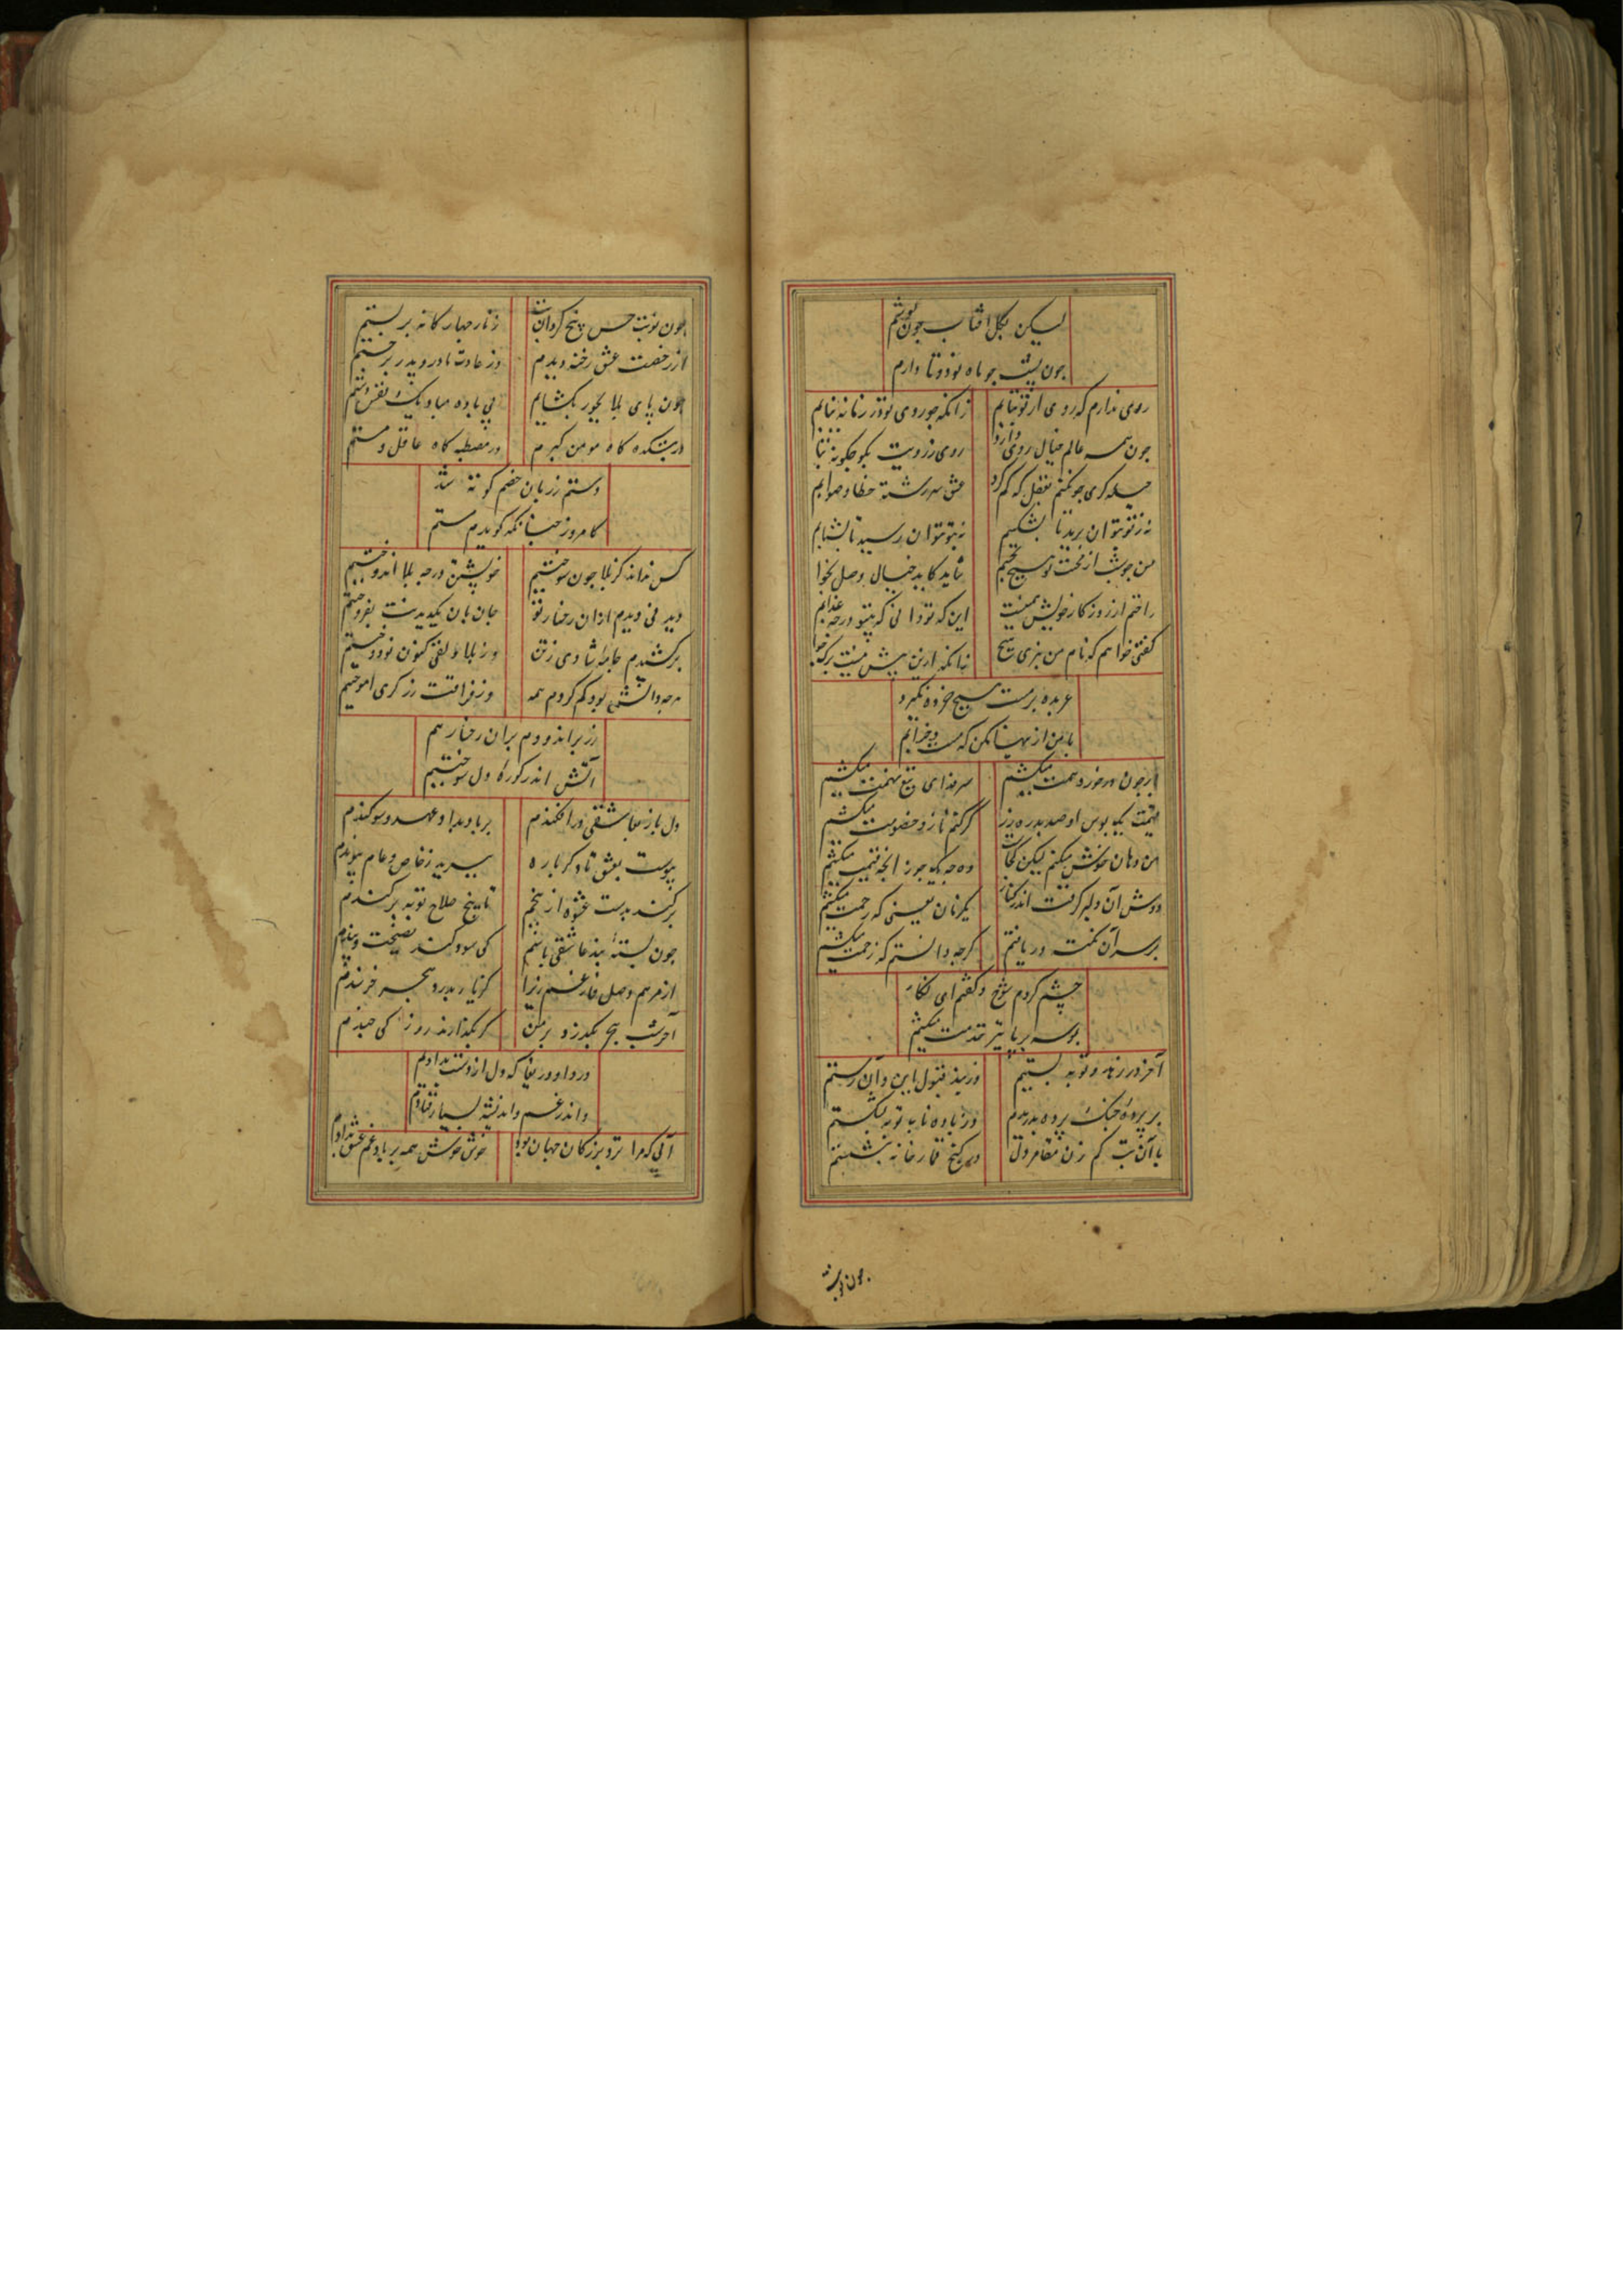 لیکن بکل آفتاب چون پوشم
چون پشت چو ماه نو دوتا دارم
روی ندارم که روی از تو بتابم
زانکه چو روی تو در زمانه نیابم
چون همه عالم خیال روی تو دارد
روی ز رویت بگو چگونه بتابم
حیله گری چون کنم بعقل که گم کرد
عشق سر رشته خطا و صوابم
نه ز تو بتوان برید تا بشکیبم
نه بتو بتوان رسید تا بشتابم
من چو شب از محنت تو هیچ نخسبم
شاید کاید خیال وصل بخوابم
راختم از روزگار خویش همینست
این که تو دانی که بیتو در چه عذابم
گفتی خواهم که نام من نبری هیچ
زانکه ازین بیش نیست برگ جوابم
عربده بر مست هیچ خرده نگیرد
با من ازینها مکن که مست و خرابم
سر فدای تیغ تهمت میکشیم
قیمت یک بوس او صد بدره زر
گر کنم ناز و خصومت میکشیم
من دهان خوش میکنم لیکن کجاست
دوش آن دلبر گرفت اندر کنار
یکزمان یعنی که رحمت میکشیم
بر سر آن نکته دریافتم
گرچه دانستم که زحمت میکشیم
چشم کردم شوخ و گفتم ای نگار
بوسه بر پا نیز قدمت میکشیم
آخر در زهد و توبه بستیم
وز بند قبول این و آن رستم
بر پرده چنگ پرده بدریدم
وز باده ناب توبه بشکستم
با آن بت کم زن مقامر دل
در کنج قمارخانه بنشستم
چون نوبت
چون نوبت حسن پنج کرد آن بت
زنار چهارگانه بر بستم
از رخصت عشق رخنه دیدم
وز عادت مادر و پدر جستم
چون پای بلا بجور بگشایم
بی باده مباد یک نفس دستم
در بتکده گاه مومن گبرم
در مصطبه گاه عاقل و مستم
دستم ز زبان خصم کوته شد
کامروز چنانکه گویدم هستم
کس نداند کز بلا چون سوختیم
خویشتن در چه بلا اندوختیم
دیدنی دیدم ازان رخسار تو
جان بان یک دیدنت بفروختیم
برکشیدم جامه شادی ز تن
وز بلا دلقی کنون نو دوختیم
هرچه دانش بود گم کردم همه
وز فراقت زرگری آموختیم
زر براندودم بران رخسار هم
آتش اندر کوره دل سوختیم
دل باز بعاشقی درافکندم
بر باد بداد عهد و سوگندم
پیوست بعشق تا دگر باره
ببرید ز خاص و عام پیوندم
برکند بدست عشوه از بیخم
تا بیخ صلاح توبه برکندم
چون بسته بند عاشقی باشم
کی سود کند نصیحت و پندم
از مرهم وصل فارغم زیرا
کز یار بدرد هجر خرسندم
آخر شب هجر بگذرد بر من
گر بگذارند روز کی چندم
دردا و دریغا که دل از دست بدادم
واندر غم و اندیشه بسیار فتادم
آبی که مرا نزد بزرگان جهان بود
خوش خوش همه بر باد غم عشق بدادم